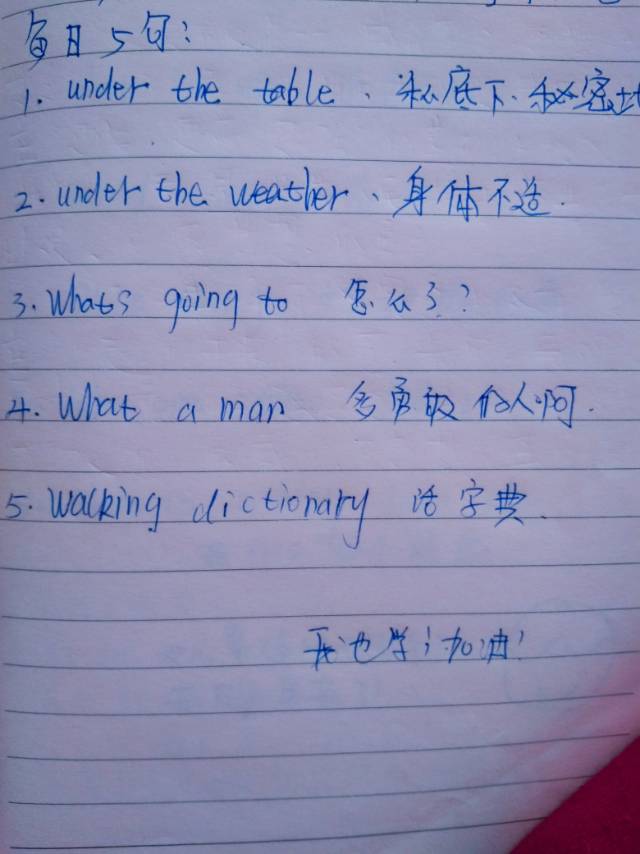 每日5句:
1. under the table、私底下、秘密地
2. under the weather、身体不适.
3. Whats going to 怎么了?
4. What a man 多勇敢的人啊.
5. Walking dictionary 活字典.
我也学;加油!